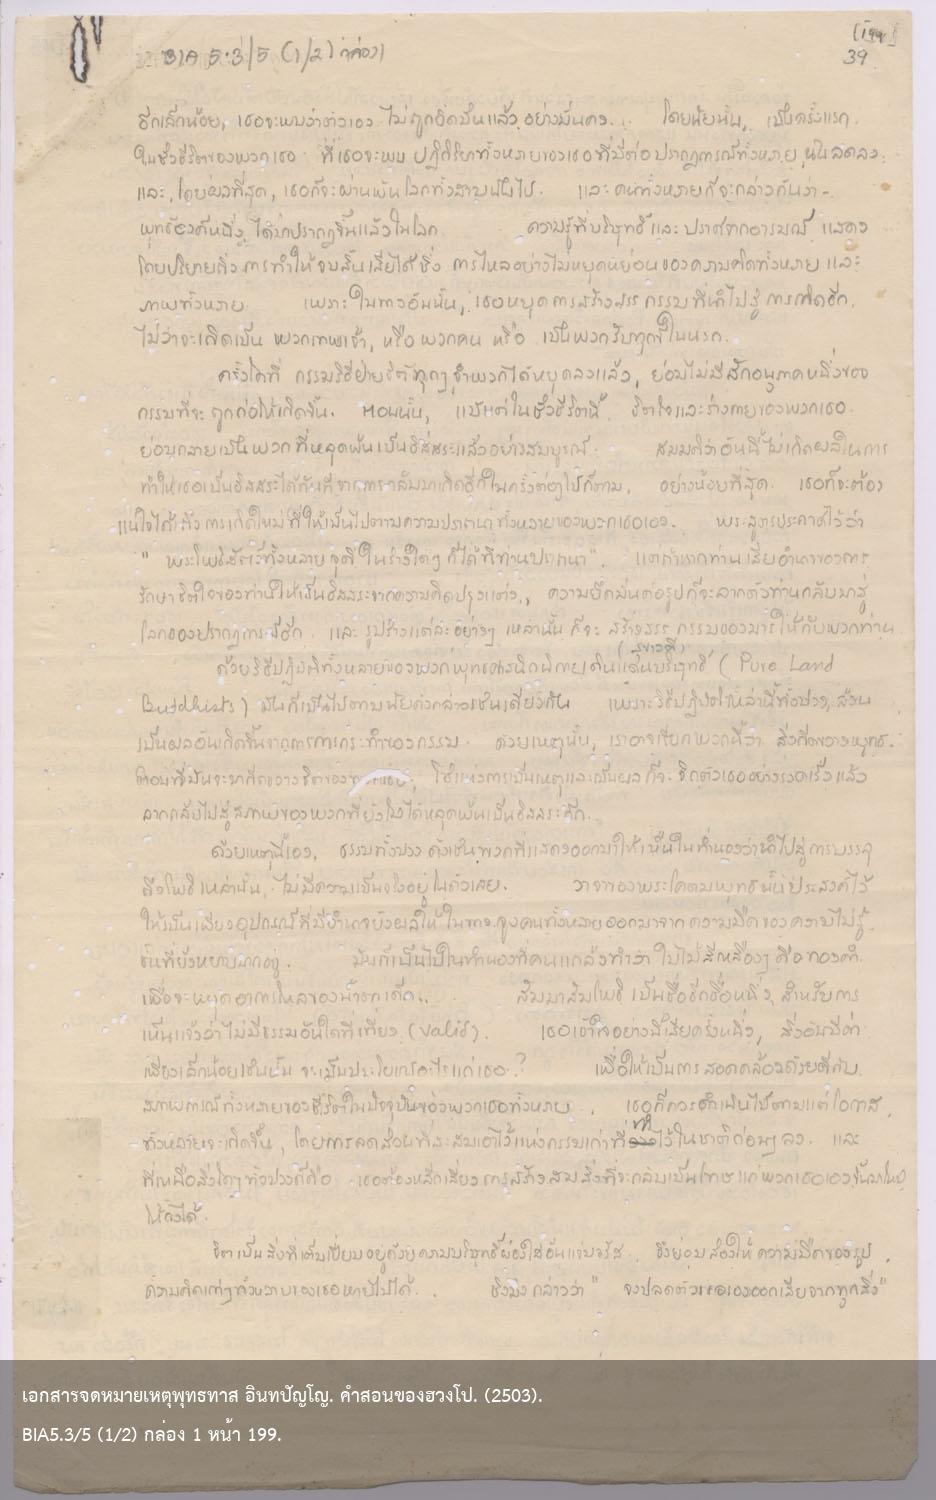 BIA 5.3/5 (1/2) กล่อง 1
[199]
39
อีกเล็กน้อย, เธอจะพบว่าตัวเอง ไม่ถูกยึดมั่นแล้ว อย่างมั่นคง... โดยนัยนั้น, เป็นครั้งแรก
ในชั่วชีวิตของพวกเธอ ที่เธอจะพบ ปฏิกิริยาทั้งหลายของเธอที่มีต่อปรากฏการณ์ทั้งหลาย นั้นลดลง,
และ, โดยผลที่สุด, เธอก็จะผ่านพ้นโลกทั้งสามนี้ไป. และ คนทั้งหลายก็จะกล่าวกันว่า-
พุทธองค์หนึ่ง ได้มาปรากฏขึ้นแล้วในโลก ความรู้ที่บริสุทธิ์และปราศจากอารมณ์ แสดง
โดยปริยายถึง การทำให้จบสิ้นเสียได้ซึ่ง การไหลอย่างไม่หยุดหย่อนของความคิดทั้งหลาย และ
ภาพทั้งหลาย เพราะในทางอันนั้น, เธอหยุดการสร้างสรรกรรมที่นำไปสู่การเกิดอีก
ไม่ว่าจะเกิดเป็น พวกเทพเจ้า, หรือพวกคน หรือ เป็นพวกรับทุกข์ในนรก.
ครั้งใดที่ กรรมวิธีฝ่ายจิตทุกๆจำพวกได้หยุดลงแล้ว, ย่อมไม่มีสักอนุภาคหนึ่งของ
กรรมที่จะ ถูกก่อให้เกิดขึ้น. ตอนนั้น, แม้แต่ในชั่วชีวิตนี้ จิตใจและร่างกายของพวกเธอ
ย่อมกลายเป็นพวกที่หลุดพ้นเป็นอิสสระแล้วอย่างสมบูรณ์ สมมติว่าอันนี้ไม่เกิดผลในการ
ทำให้เธอเป็นอิสสระได้ทันทีจากการกลับมาเกิดอีกในครั้งต่อๆไปก็ตาม, อย่างน้อยที่สุด เธอก็จะต้อง
แน่ใจได้ถึงการเกิดใหม่ ที่ให้เป็นไปตามความปรารถนาทั้งหลายของพวกเธอเอง. พระสูตรประกาศไว้ว่า
" พระโพธิสัตว์ทั้งหลายจุติในร่างใดๆก็ได้ที่ท่านปรารถนา". แต่ถ้าหากท่านเสียอำนาจของการ
รักษาจิตใจของท่านให้เป็นอิสสระจากความคิดปรุงแต่ง, ความยึดมั่นต่อรูปก็จะลากตัวท่านกลับมาสู่
โลกของปรากฏการณ์อีก. และ รูปร่างแต่ละอย่างๆ เหล่านั้น ก็จะ สร้างสรรกรรมของมารให้กับพวกท่าน
(สุขาวดี)
ด้วยวิธีปฏิบัติทั้งหลายของพวกพุทธศาสนิกนิกายแดนบริสุทธิ์ (Pure Land
Buddhists) มันก็เป็นไปตามนัยดังกล่าวเช่นเดียวกัน เพราะวิธีปฏิบัติเหล่านี้ทั้งปวง, ล้วน
เป็นผลอันเกิดขึ้นจากการกระทำของกรรม. ด้วยเหตุนั้น, เราอาจเรียกพวกนี้ว่า สิ่งกีดขวางพุทธ.
ตอนที่มันจะมากีดขวางจิตของพวกเธอ, โซ่แห่งการเป็นเหตุและเป็นผล ก็จะ ยึดตัวเธออย่างรวดเร็ว แล้ว
ลากกลับไปสู่สภาพของพวกที่ยังไม่ได้หลุดพ้นเป็นอิสสระอีก.
ด้วยเหตุนี้เอง, ธรรมทั้งปวง ดังเช่นพวกที่แสดงออกมาให้เห็นในทำนองว่านำไปสู่การบรรลุ
ถึงโพธิเหล่านั้น, ไม่มีความเป็นจริงอยู่ในตัวเลย. วาจาของพระโคตมพุทธนั้นประสงค์ไว้
ให้เป็นเพียงอุปกรณ์ที่มีอำนาจยังผลให้ ในการจูงคนทั้งหลายออกมาจากความมืดของความไม่รู้,
ชั้นที่ยังหยาบมากอยู่. มันก็เป็นไปในทำนองที่คนแกล้งทำว่า ใบไม้สีเหลืองๆคือทองคำ
เพื่อจะหยุดอาการไหลของน้ำตาเด็ก.. สัมมาสัมโพธิ เป็นชื่ออีกชื่อหนึ่ง สำหรับการ
เห็นแจ้งว่า ไม่มีธรรมอันใดที่เที่ยง (Valid). เธอเข้าใจอย่างนี้เสียครั้งหนึ่ง, สิ่งอันมีค่า
เพียงเล็กน้อยเช่นนั้น จะเป็นประโยชน์อะไรแก่เธอ.? เพื่อให้เป็นการสอดคล้องด้วยดีกับ
สภาพการณ์ทั้งหลายของชีวิตในปัจจุบันของพวกเธอทั้งหลาย, เธอก็ควรดำเนินไปตามแต่โอกาส
ทั้งหลายจะเกิดขึ้น, โดยการลดส่วนที่สะสมเอาไว้แห่งกรรมเก่าที่ทำไว้ในชาติก่อนๆลง. และ
ที่เหนือสิ่งใดๆทั้งปวงก็คือ เธอต้องหลีกเลี่ยงการสร้างสมสิ่งที่จะกลับเป็นโทษแก่พวกเธอเองขึ้นมาใหม่
ให้จงได้.
จิตเป็นสิ่งที่เต็มเปี่ยมอยู่ด้วยความบริสุทธิ์ผ่องใสอันแจ่มจรัส จึงย่อมส่องให้ความมืดของรูป,
ความคิดเก่าๆทั้งหลายของเธอหายไปได้. จึงมีคำกล่าวว่า " จงปลดตัวเธอเองออกเสียจากทุกสิ่ง"
เอกสารจดหมายเหตุพุทธทาส อินทปัญโญ. คำสอนของฮวงโป. (2503).
BIA5.3/5 (1/2) กล่อง 1 หน้า 199.